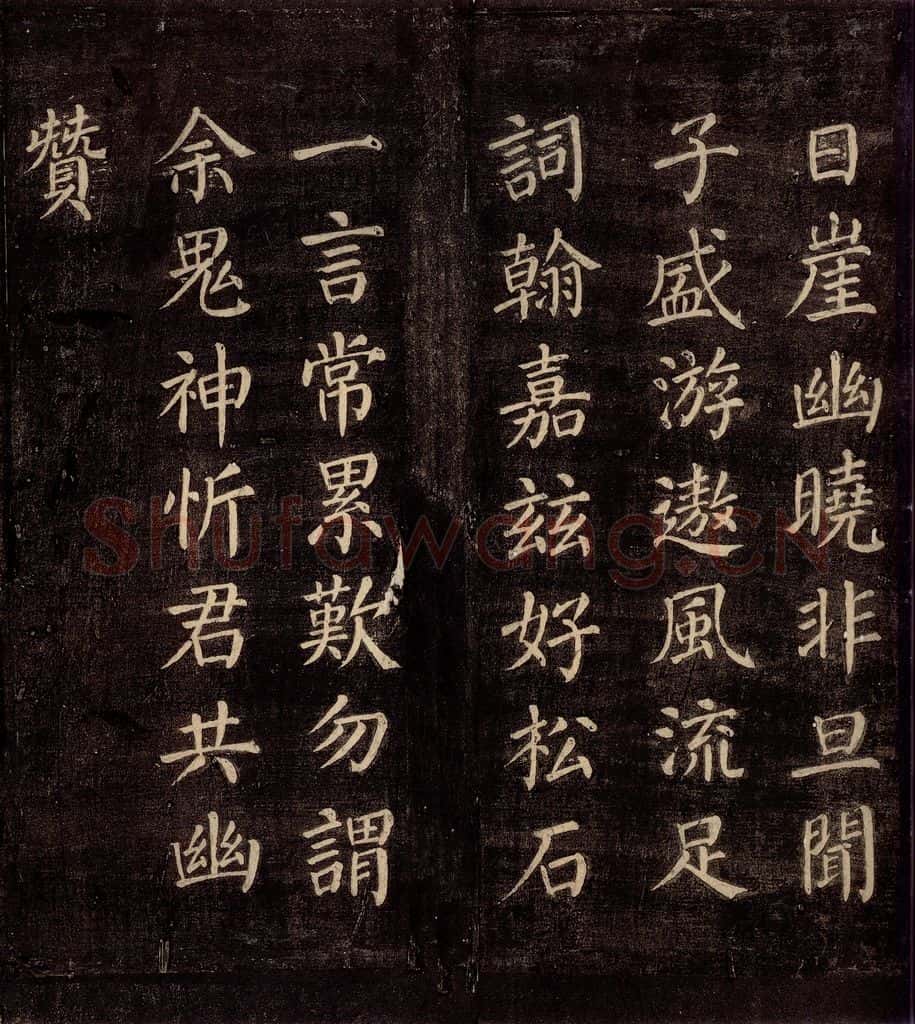 日崖幽曉非旦聞
子盛游遨風流足
詞翰嘉茲好松石
一言常累歎勿謂
余鬼神忻君共幽
贊
Shufawang.CN